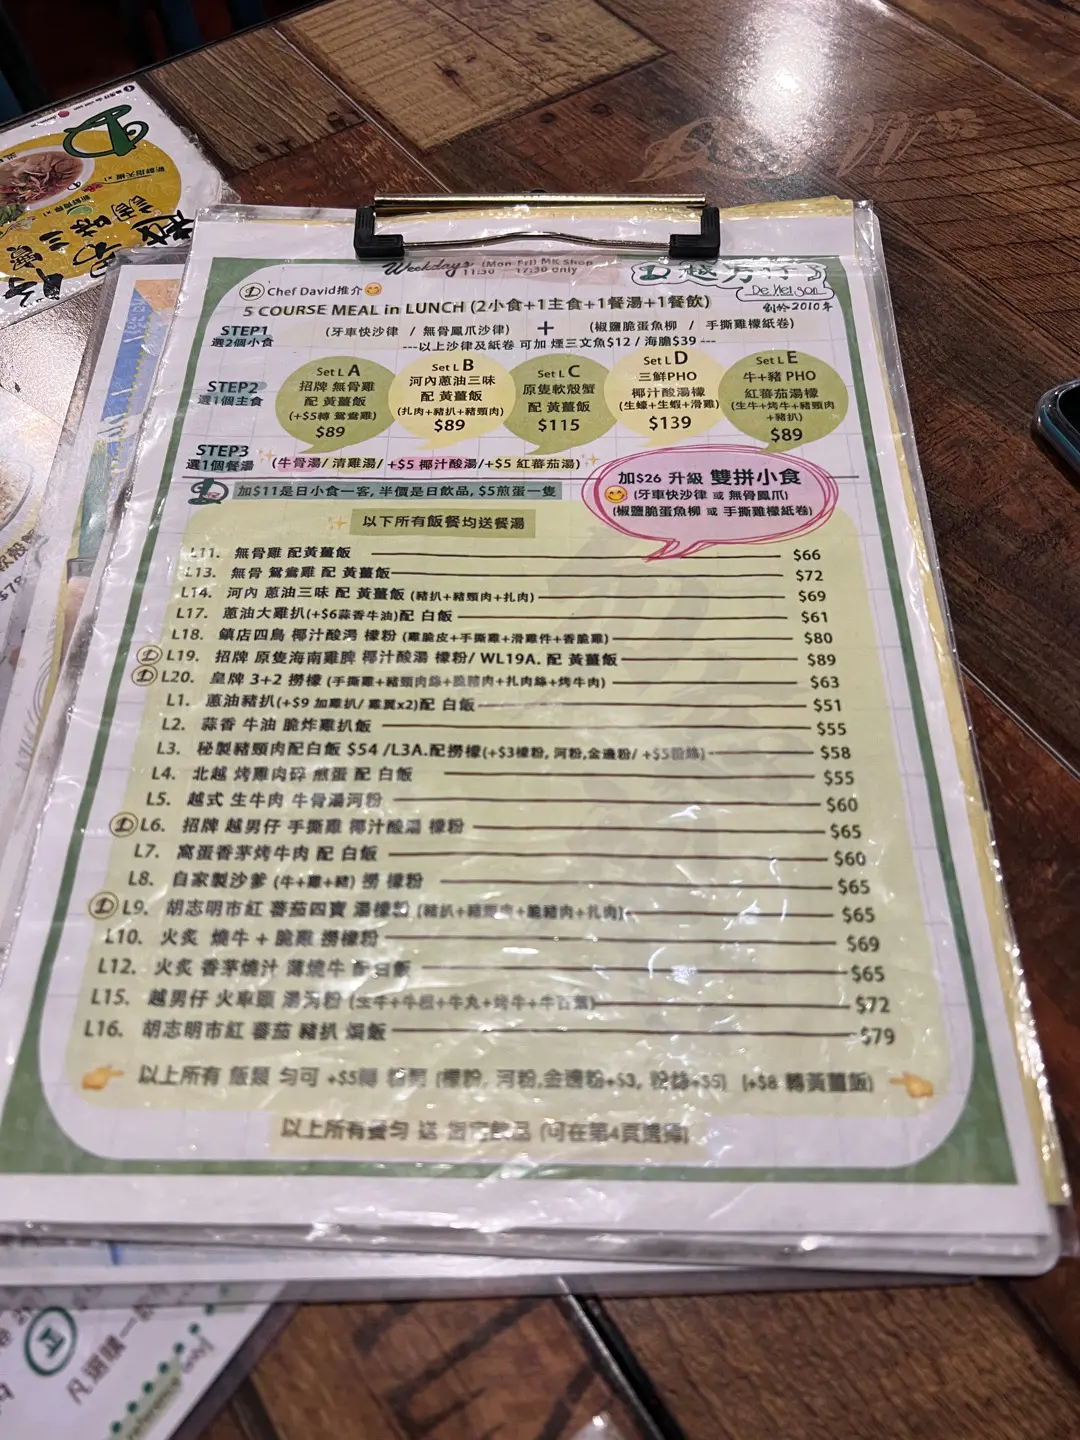 Weekdays (Mon-Fri) MK Shop
11:30 - 17:30 only
越男仔
De Nelson
創於2010年
Chef David推介
5 COURSE MEAL in LUNCH (2小食+1主食+1餐湯+1餐飲)
STEP1
選2個小食
(牙車快沙律 / 無骨鳳爪沙律) + (椒鹽脆蛋魚柳 / 手撕雞檬紙卷)
---以上沙律及紙卷 可加 煙三文魚$12 / 海膽$39 ---
STEP2
選1個主食
Set L A
招牌 無骨雞
配 黃薑飯
(+$5轉 鴛鴦雞)
$89
Set L B
河內蔥油三味
配 黃薑飯
(扎肉+豬扒+豬頸肉)
$89
Set L C
原隻軟殼蟹
配 黃薑飯
$115
Set L D
三鮮PHO
椰汁酸湯檬
(生蠔+生蝦+滑雞)
$139
Set L E
牛+豬 PHO
紅蕃茄湯檬
(生牛+烤牛+豬頸肉
+豬扒)
$89
STEP3
選1個餐湯
(牛骨湯/ 清雞湯/ +$5 椰汁酸湯/+$5 紅蕃茄湯)
加$11是日小食一客, 半價是日飲品, $5煎蛋一隻
加$26 升級 雙拼小食
(牙車快沙律 或 無骨鳳爪)
(椒鹽脆蛋魚柳 或 手撕雞檬紙卷)
以下所有飯餐均送餐湯
L11. 無骨雞 配黃薑飯 $66
L13. 無骨 鴛鴦雞 配 黃薑飯 $72
L14. 河內 蔥油三味 配 黃薑飯 (豬扒+豬頸肉+扎肉) $69
L17. 蔥油大雞扒(+$6蒜香牛油)配 白飯 $61
L18. 鎮店四鳥 椰汁酸湯 檬粉 (雞脆皮+手撕雞+滑雞件+香脆雞) $80
L19. 招牌 原隻海南雞髀 椰汁酸湯 檬粉/ WL19A. 配 黃薑飯 $89
L20. 皇牌 3+2 撈檬 (手撕雞+豬頸肉絲+脆豬肉+扎肉絲+烤牛肉) $63
L1. 蔥油豬扒(+$9 加雞扒/ 雞翼x2)配 白飯 $51
L2. 蒜香 牛油 脆炸雞扒飯 $55
L3. 秘製豬頸肉配白飯 $54 /L3A.配撈檬(+$3檬粉, 河粉,金邊粉/ +$5粉絲) $58
L4. 北越 烤雞肉碎 煎蛋 配 白飯 $55
L5. 越式 生牛肉 牛骨湯河粉 $60
L6. 招牌 越男仔 手撕雞 椰汁酸湯 檬粉 $65
L7. 窩蛋香茅烤牛肉 配 白飯 $60
L8. 自家製沙爹 (牛+雞+豬) 撈 檬粉 $65
L9. 胡志明市紅 蕃茄四寶 湯檬粉 (豬扒+豬頸肉+脆豬肉+扎肉) $65
L10. 火炙 燒牛 + 脆雞 撈檬粉 $69
L12. 火炙 香茅燒汁 薄燒牛 配白飯 $65
L15. 越男仔 火車頭 湯河粉 (生牛+牛筋+牛丸+烤牛+牛百葉) $72
L16. 胡志明市紅 蕃茄 豬扒 焗飯 $79
以上所有 飯類 勻可 +$5轉 (檬粉, 河粉,金邊粉+$3, 粉絲+$5) (+$8 轉黃薑飯)
以上所有餐勻 送 指定飲品 (可在第4頁選擇)